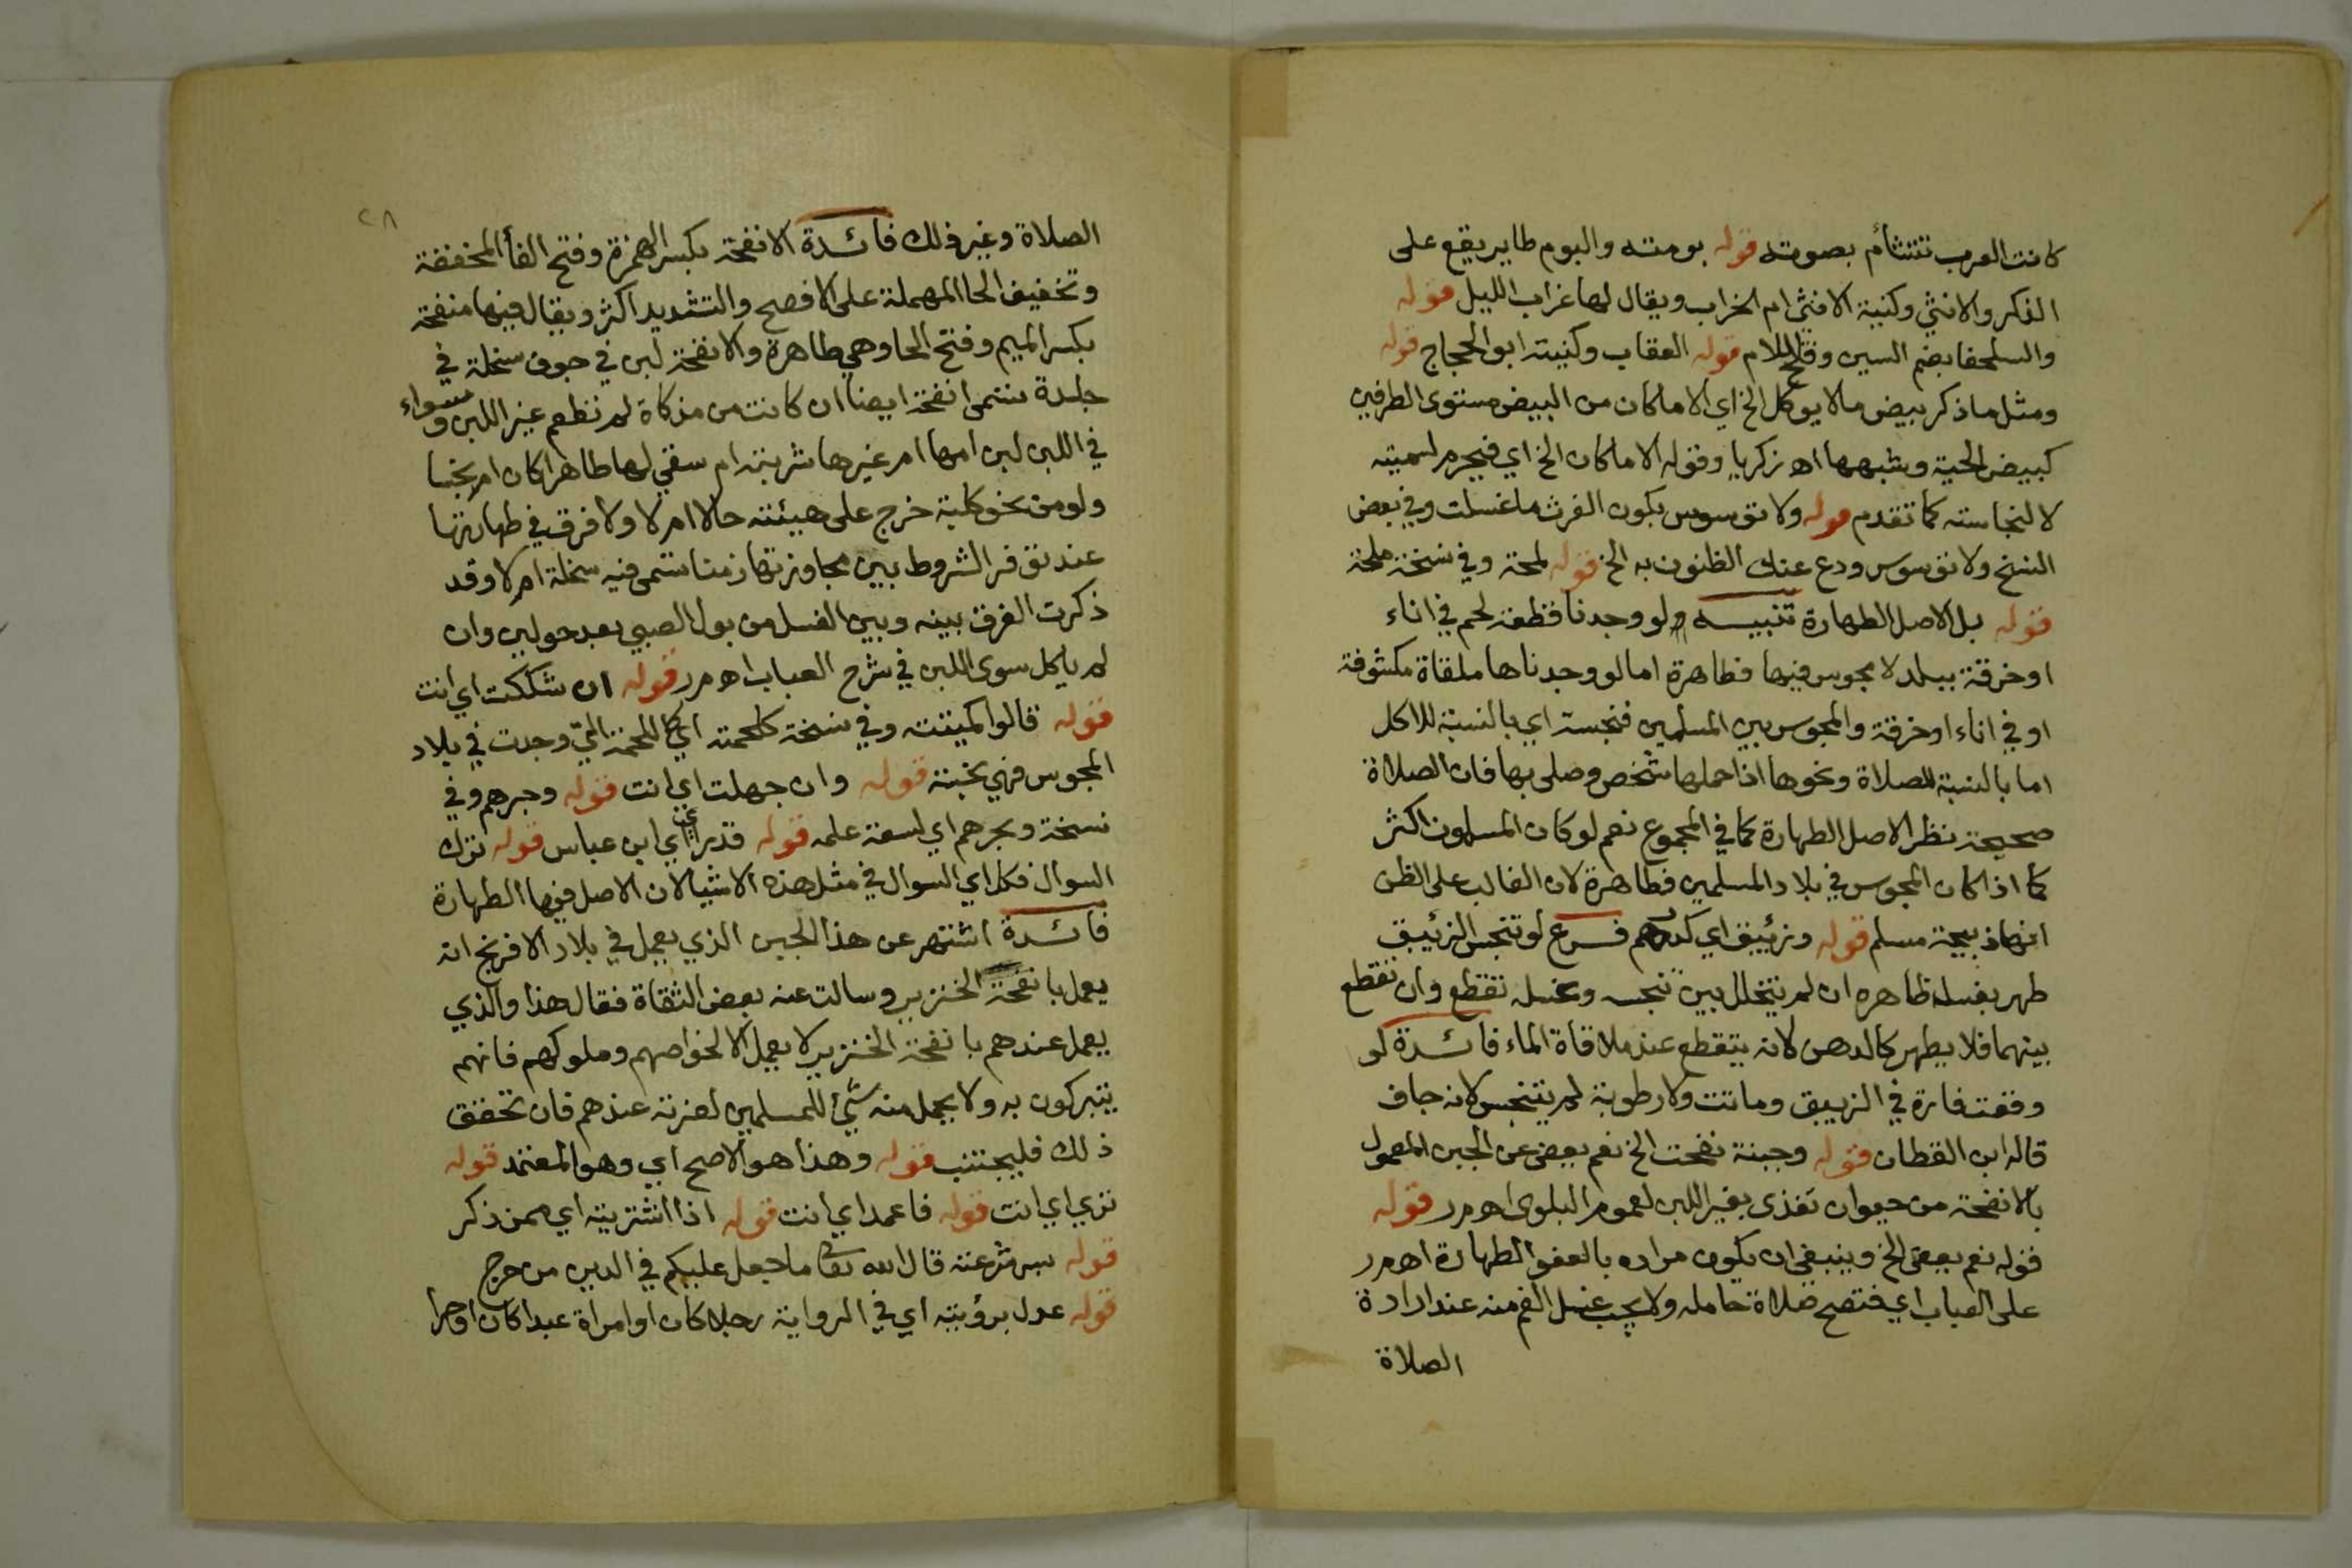 كانت العرب تتشأم بصوته قوله بومته والبوم طاير يقع على
الذكر والانثي وكنية الانثى ام الخراب ويقال لها غراب الليل قوله
والسلحفا بضم السين وفتح اللام قوله العقاب وكنيته ابو الحجاج قوله
ومثل ما ذكر بيض مالا يوكل الخ اي الا ما كان من البيض مستوى الطرفين
كبيض الحية وشبهها اه زكريا وقوله الا ما كان الخ اي فيحرم لسميته
لا لنجاسته كما تقدم قوله ولا توسوس بكون الفرث ما غسلت وفي بعض
النسخ ولا توسوس ودع عنك الظنون به الخ قوله لمحة وفي نسخة ملحة
قوله بل الاصل الطهارة تنبيه ولو وجدنا قطعة لحم في اناء
اوخرقة ببلد لا مجوس فيها فطاهرة اما لو وجدناها ملقاة مكشوفة
او في اناء اوخرقة والمجوس بين المسلمين فنجسة اي بالنسبة للاكل
اما بالنسبة للصلاة ونحوها اذا حملها شخص وصلى بها فان الصلاة
صحيحة نظر الاصل الطهارة كما في المجموع نعم لو كان المسلمون اكثر
كما اذا كان المجوس في بلاد المسلمين فطاهرة لان الغالب على الظن
انها ذبيحة مسلم قوله وزئيبق اي كدرهم فرع لو تنجس الزئيبق
طهر بغسل ظاهره ان لم يتخلل بين تنجسه وغسله تقطع وان تقطع
بينهما فلا يطهر كالدهن لانه يتقطع عند ملاقاة الماء فائدة لو
وقعت فارة في الزيبق وماتت ولا رطوبة لم يتنجس لانه جاف
قاله ابن القطان قوله وجبنة نفحت الخ نعم يعفى عن الجبن المعمول
بالانفحة من حيوان تغذى بغير اللبن لعموم البلوى اه م ر قوله
قوله نعم يعفى الخ وينبغي ان يكون مراده بالعفو الطهارة اه م ر
على العباب اي فتصح صلاة حامله ولا يجب غسل الفم منه عند ارادة
الصلاة
٢٨
الصلاة وغير ذلك فائدة الانفحة بكسر الهمزة وفتح الفأ المخففة
وتخفيف الحا المهملة على الافصح والتشديد اكثر ويقال فيها منفحة
بكسر الميم وفتح الحا وهي طاهرة والانفحة لبن في جوف سخلة في
جلدة تسمى انفحة ايضا ان كانت من مذكاة لم تطعم غير اللبن وسواء
في اللبن لبن امها ام غيرها شربته ام سقي لها طاهرا كان ام نجسا
ولو من نحو كلبة خرج على هيئته حالا ام لا ولا فرق في طهارتها
عند توفر الشروط بين مجاوزتها زمنا تسمى فيه سخلة ام لا وقد
ذكرت الفرق بينه وبين الغسل من بول الصبي بعد حولين وان
لم ياكل سوى اللبن في شرح العباب اه م ر قوله ان شككت اي انت
قوله قالوا كميتته وفي نسخة كلحمته اي كاللحمة التي وجدت في بلاد
المجوس فهي نجسة قوله وان جهلت اي انت قوله وحبرهم وفي
نسخة وبحرهم اي لسعة علمه قوله قد براي اي ابن عباس قوله ترك
السوال فكل اي السوال في مثل هذه الاشيا لان الاصل فيها الطهارة
فائدة اشتهر عن هذا الجبن الذي يعمل في بلاد الافرنج انه
يعمل بانفحة الخنزير وسالت عنه بعض الثقاة فقال هذا والذي
يعمل عندهم بانفحة الخنزير لا يعمل الا لخواصهم وملوكهم فانهم
يتبركون به ولا يجعل منه شئ للمسلمين لعزته عندهم فان تحقق
ذلك فليجتنب قوله وهذا هو الاصح اي وهو المعتمد قوله
تري اي انت قوله فاعمد اي انت قوله اذا اشتريته اي ممن ذكر
قوله قال الله تعا ما جعل عليكم في الدين من حرج
قوله عدل برؤيته اي في الرواية رجلا كان او امراة عبدا كان اوحرا